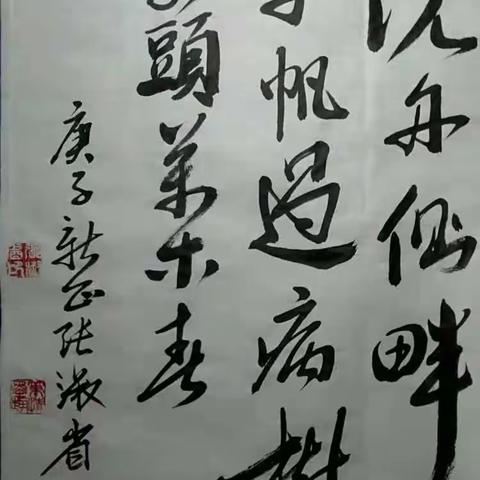 沉舟側畔
千帆過病樹
前頭萬木春
庚子新正張淑省